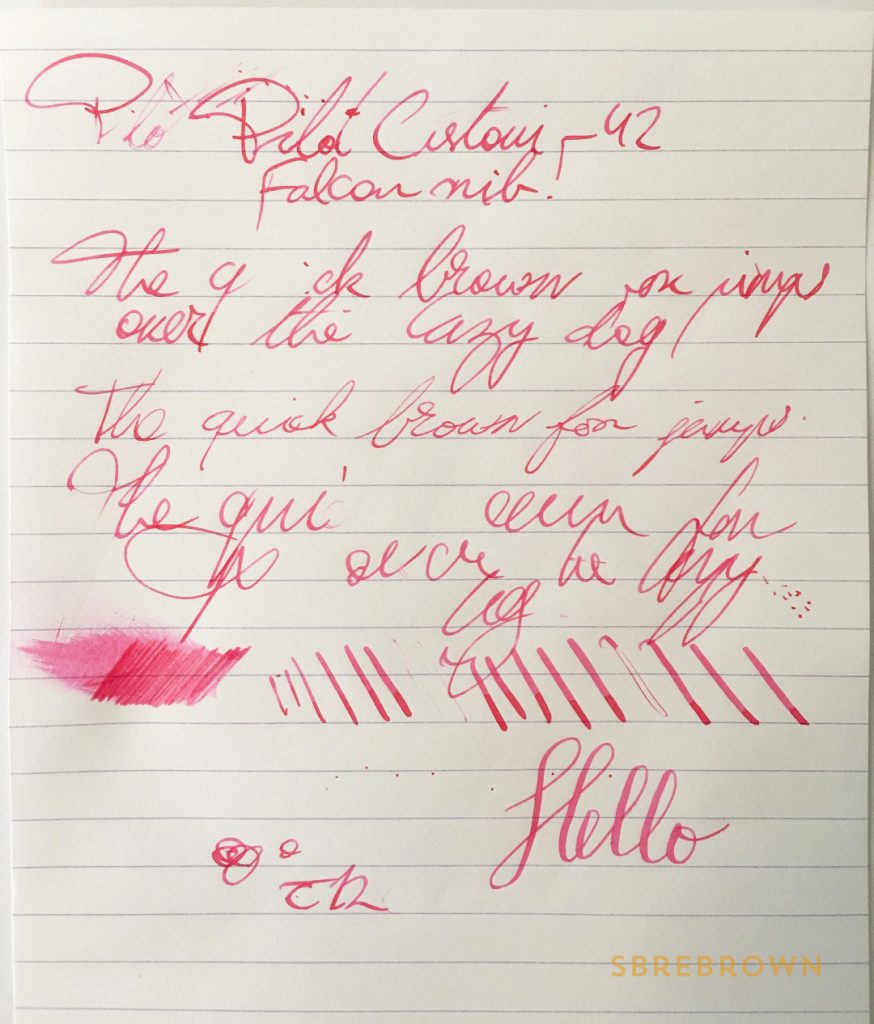 Pilot Custom 742
Falcon nib.
The q ick brown fox jumps
over the lazy dog
The quick brown fox jumps.
The qui fox
over the lazy
dog
Hello
SBREBROWN